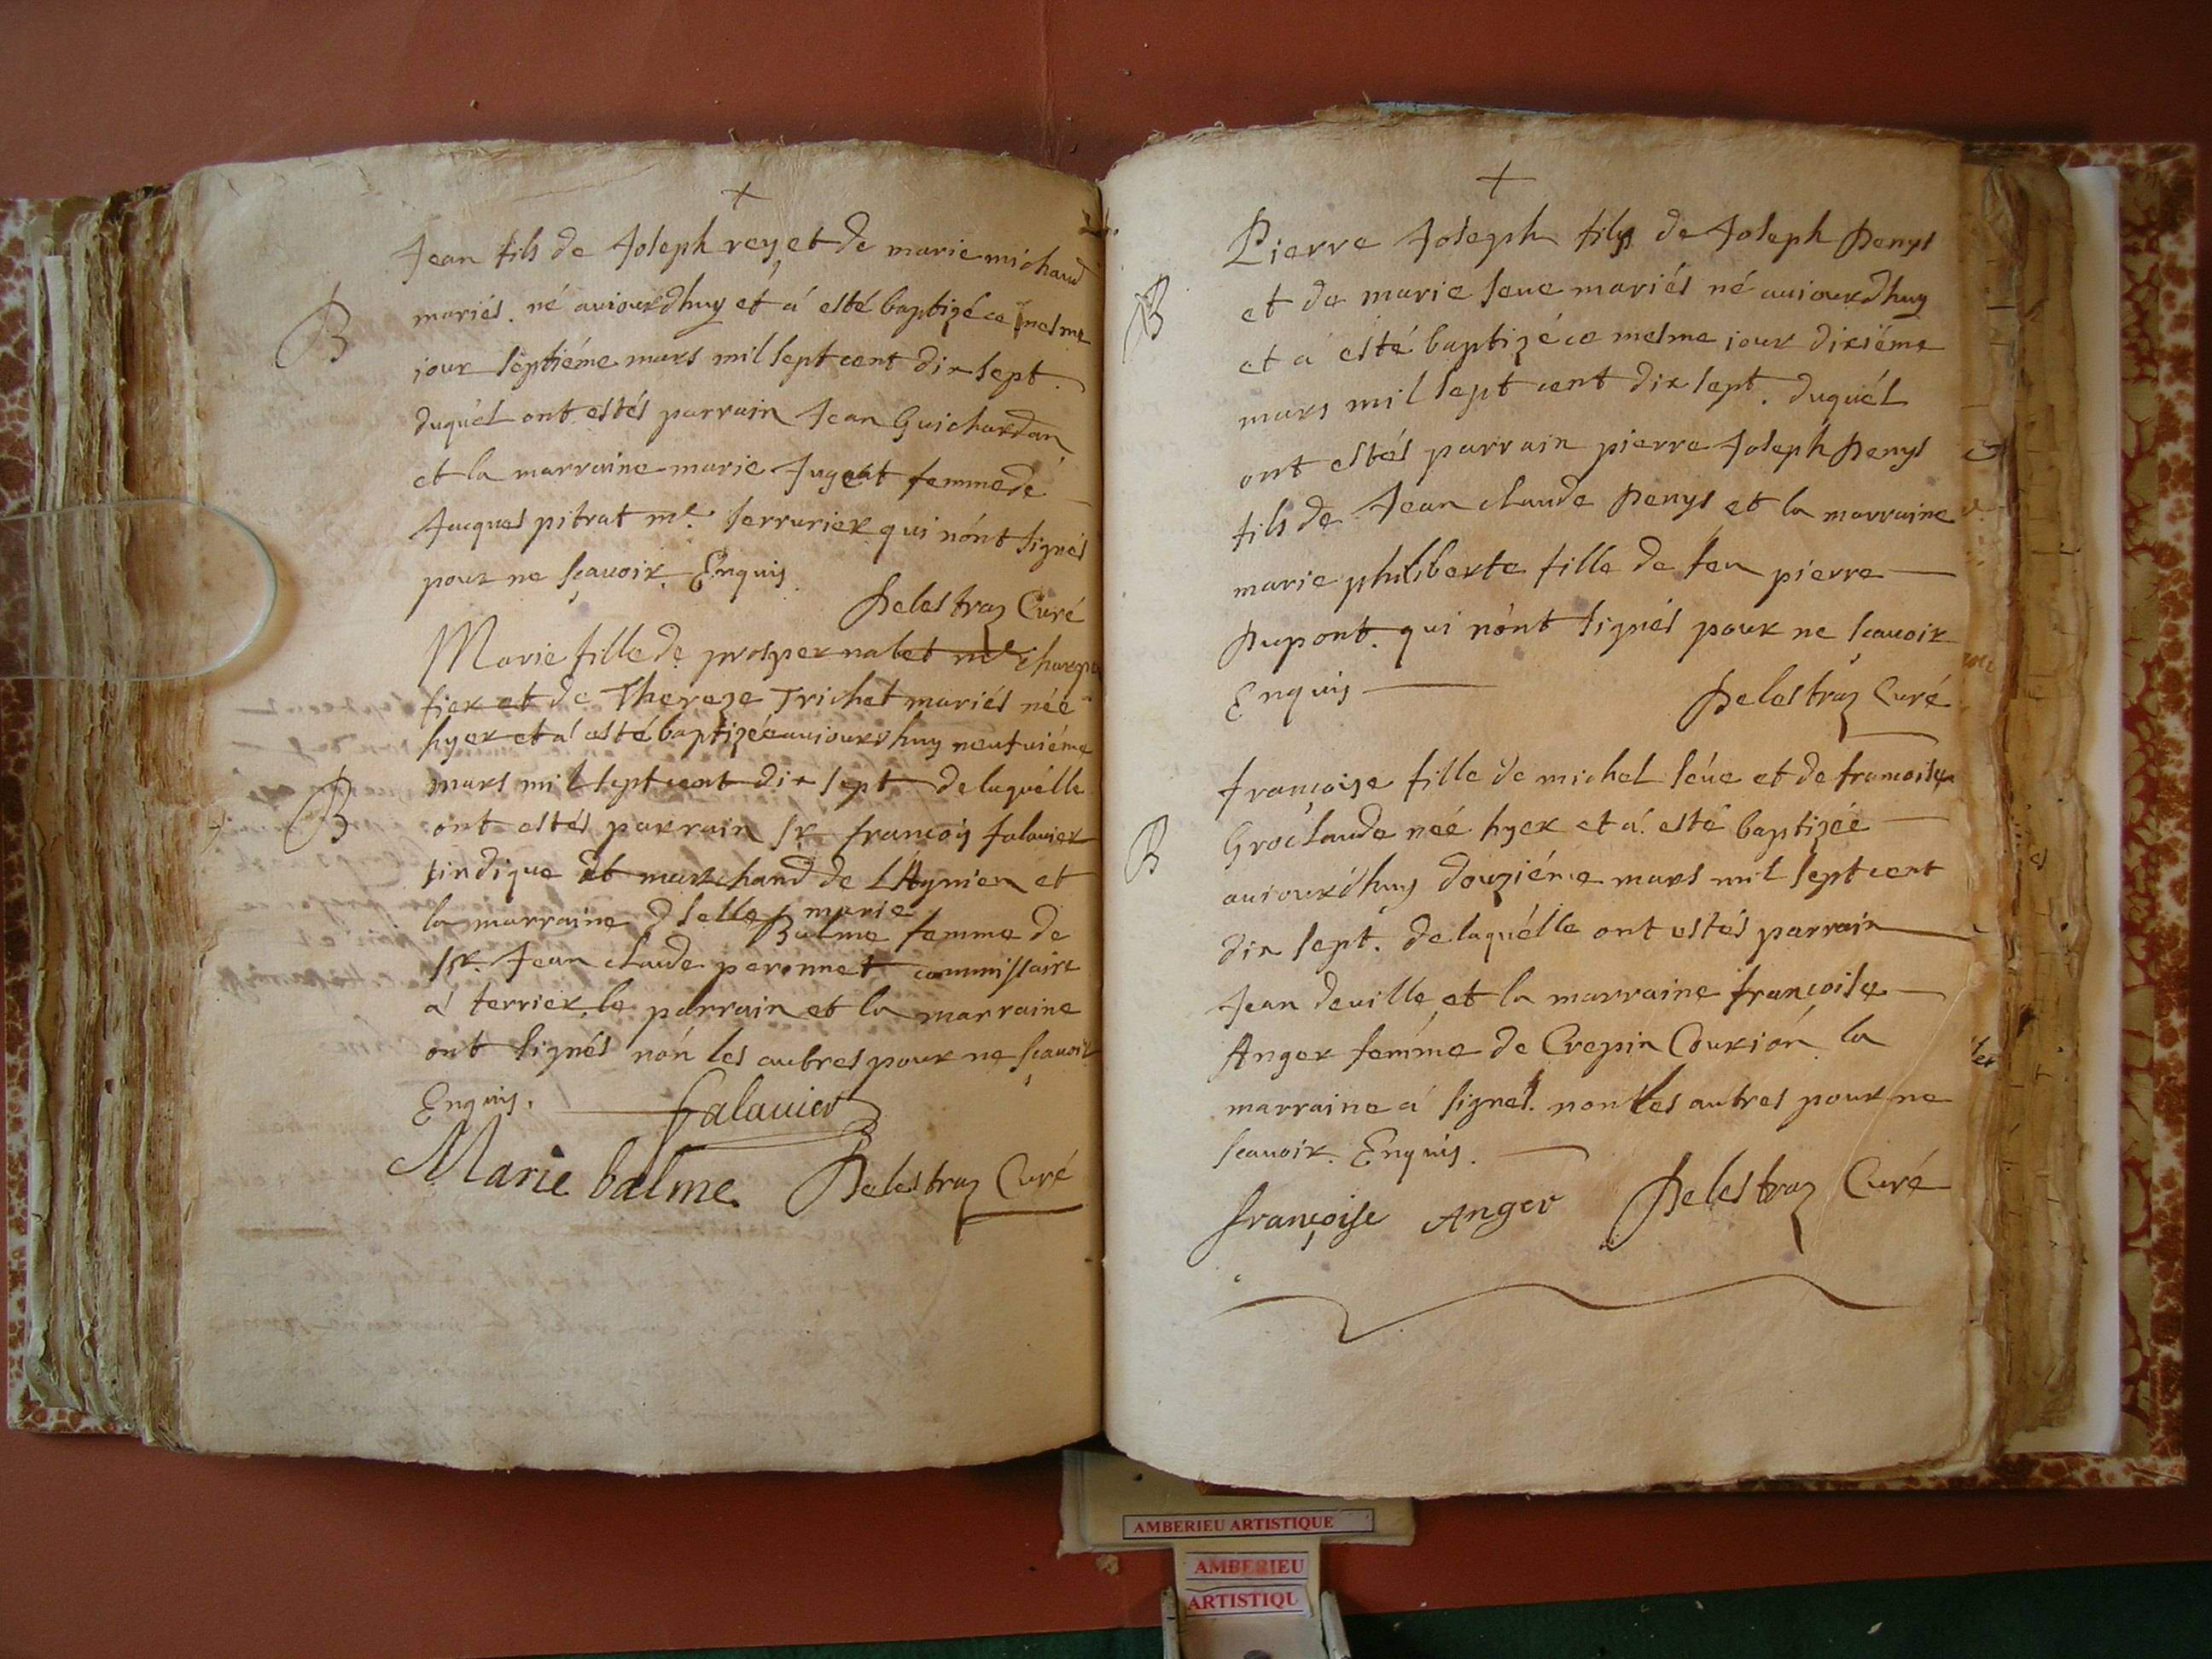 +
Jean fils de Joseph rey, et de marie michaud
B
mariés. né auiourdhuy et á esté baptizé ce mesme
jour septiéme mars mil sept cent dix sept.
duquél ont estés parrain Jean Guichardan
et la marraine marie Jugeat femme de
Jacques pitrat me. serrurier qui nónt signés
pour ne sçauoir. Enquis.
Delestraz Curé
Marie fille de prosper nalet me charpa
tier et de Thereze Trichet mariés née
hyer et á esté baptizée auiourdhuy neufuiéme
B
mars mil sept cent dix sept de laquélle
ont estés parrain sr. françois falauier
sindique et marchand de L'Agnieu et
la marraine dselle marie
Balme femme de
sr. Jean claude peronnet commissaire
á terrier. le parrain et la marraine
ont signés nón les autres pour ne sçauoir
Enquis.
falauier
Marie balme Delestraz Curé
+
Pierre Joseph fils de Joseph Denys
B
et de marie seue mariés né auiourdhuy
et á esté baptizé ce mesme iour dixiéme
mars mil sept cent dix sept. duquél
ont estés parrain pierre Joseph Denys
fils de Jean claude Denys et la marraine
marie philiberte fille de feu pierre
Dupont. qui nónt signés pour ne sçauoir
Enquis
Delestraz Curé
françoise fille de michel séue et de francoise
B
Groclaude née hyer et á esté baptizée
auiourd'huy douziéme mars mil sept cent
dix sept. de laquélle ont estés parrain
Jean deuille et la marraine françoise
Anger fémme de Crepin Courión la
marraine á signé. non les autres pour ne
sçauoir. Enquis.
françoise Anger Delestraz Curé
AMBERIEU ARTISTIQUE
AMBERIEU
ARTISTIQU